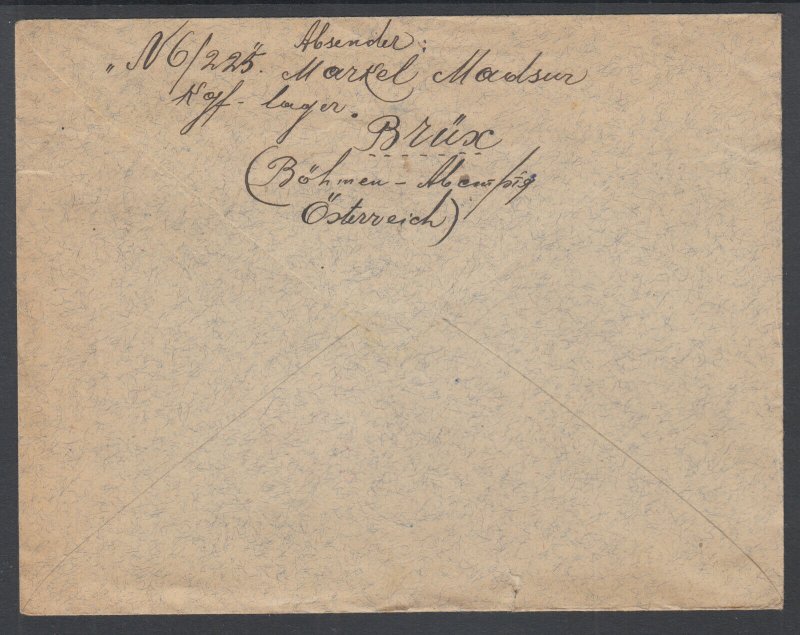 Absender:
„N6/225. Markel Madsur
Kgf-lager.
Brüx
(Böhmen -
Österreich)